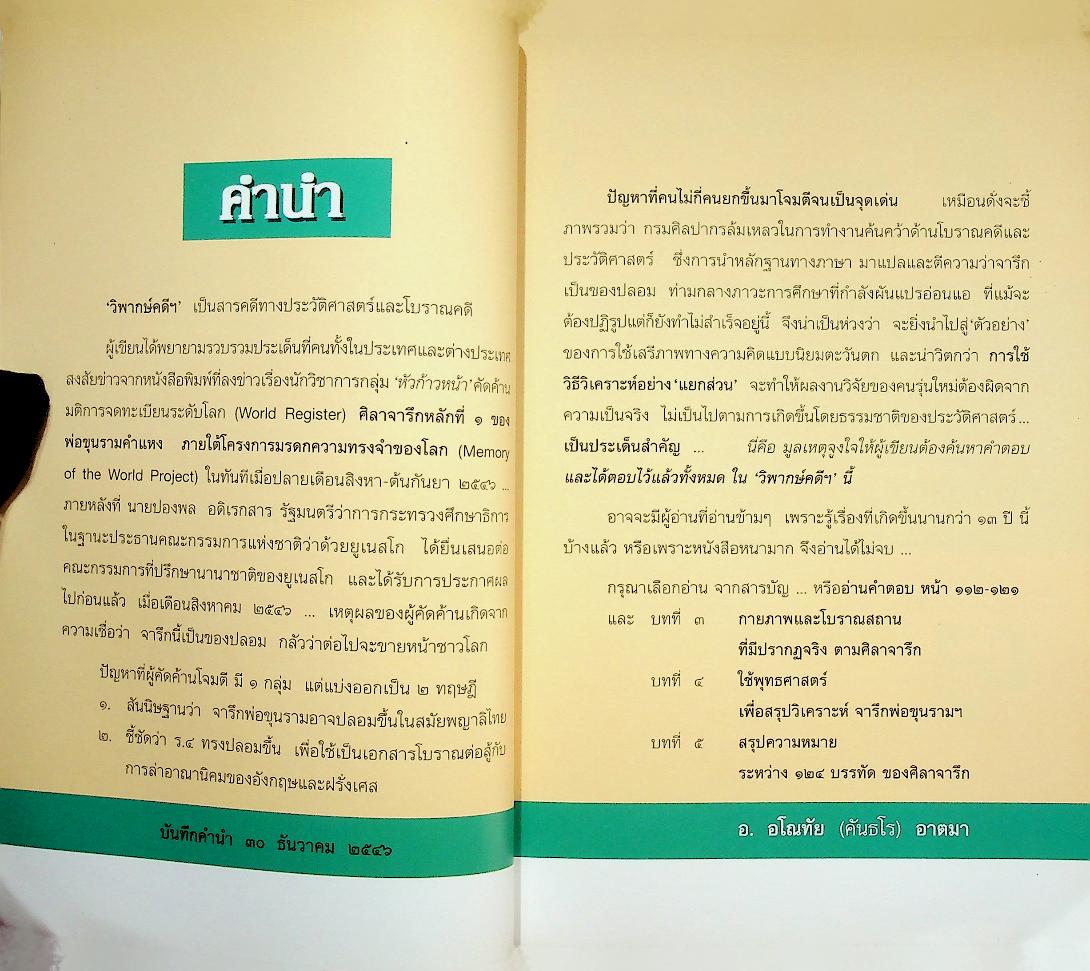 คำนำ
'วิพากษ์คดีฯ' เป็นสารคดีทางประวัติศาสตร์และโบราณคดี
ผู้เขียนได้พยายามรวบรวมประเด็นที่คนทั้งในประเทศและต่างประเทศ
สงสัยข่าวจากหนังสือพิมพ์ที่ลงข่าวเรื่องนักวิชาการกลุ่ม 'หัวก้าวหน้า' คัดค้าน
มติการจดทะเบียนระดับโลก (World Register) ศิลาจารึกหลักที่ ๑ ของ
พ่อขุนรามคำแหง ภายใต้โครงการมรดกความทรงจำของโลก (Memory
of the World Project) ในทันทีเมื่อปลายเดือนสิงหา-ต้นกันยา ๒๕๔๖ ...
ภายหลังที่ นายปองพล อดิเรกสาร รัฐมนตรีว่าการกระทรวงศึกษาธิการ
ในฐานะประธานคณะกรรมการแห่งชาติว่าด้วยยูเนสโก ได้ยื่นเสนอต่อ
คณะกรรมการที่ปรึกษานานาชาติของยูเนสโก และได้รับการประกาศผล
ไปก่อนแล้ว เมื่อเดือนสิงหาคม ๒๕๔๖ ... เหตุผลของผู้คัดค้านเกิดจาก
ความเชื่อว่า จารึกนี้เป็นของปลอม กลัวว่าต่อไปจะขายหน้าชาวโลก
ปัญหาที่ผู้คัดค้านโจมตี มี ๑ กลุ่ม แต่แบ่งออกเป็น ๒ ทฤษฎี
๑. สันนิษฐานว่า จารึกพ่อขุนรามอาจปลอมขึ้นในสมัยพญาลิไทย
๒. ชี้ชัดว่า ร.๔ ทรงปลอมขึ้น เพื่อใช้เป็นเอกสารโบราณต่อสู้กับ
การล่าอาณานิคมของอังกฤษและฝรั่งเศส
บันทึกคำนำ ๓๐ ธันวาคม ๒๕๔๖
ปัญหาที่คนไม่กี่คนยกขึ้นมาโจมตีจนเป็นจุดเด่น เหมือนดั่งจะชี้
ภาพรวมว่า กรมศิลปากรล้มเหลวในการทำงานค้นคว้าด้านโบราณคดีและ
ประวัติศาสตร์ ซึ่งการนำหลักฐานทางภาษา มาแปลและตีความว่าจารึก
เป็นของปลอม ท่ามกลางภาวะการศึกษาที่กำลังผันแปรอ่อนแอ ที่แม้จะ
ต้องปฏิรูปแต่ก็ยังทำไม่สำเร็จอยู่นี้ จึงน่าเป็นห่วงว่า จะยิ่งนำไปสู่'ตัวอย่าง'
ของการใช้เสรีภาพทางความคิดแบบนิยมตะวันตก และน่าวิตกว่า การใช้
วิธีวิเคราะห์อย่าง'แยกส่วน' จะทำให้ผลงานวิจัยของคนรุ่นใหม่ต้องผิดจาก
ความเป็นจริง ไม่เป็นไปตามการเกิดขึ้นโดยธรรมชาติของประวัติศาสตร์...
เป็นประเด็นสำคัญ ... นี่คือ มูลเหตุจูงใจให้ผู้เขียนต้องค้นหาคำตอบ
และได้ตอบไว้แล้วทั้งหมด ใน 'วิพากษ์คดีฯ' นี้
อาจจะมีผู้อ่านที่อ่านข้ามๆ เพราะรู้เรื่องที่เกิดขึ้นนานกว่า ๑๓ ปี นี้
บ้างแล้ว หรือเพราะหนังสือหนามาก จึงอ่านได้ไม่จบ ...
กรุณาเลือกอ่าน จากสารบัญ ... หรืออ่านคำตอบ หน้า ๑๑๒-๑๒๑
และ บทที่ ๓ กายภาพและโบราณสถาน
ที่มีปรากฏจริง ตามศิลาจารึก
บทที่ ๔ ใช้พุทธศาสตร์
เพื่อสรุปวิเคราะห์ จารึกพ่อขุนรามฯ
บทที่ ๕ สรุปความหมาย
ระหว่าง ๑๒๔ บรรทัด ของศิลาจารึก
อ. อโณทัย (คันธโร) อาตมา